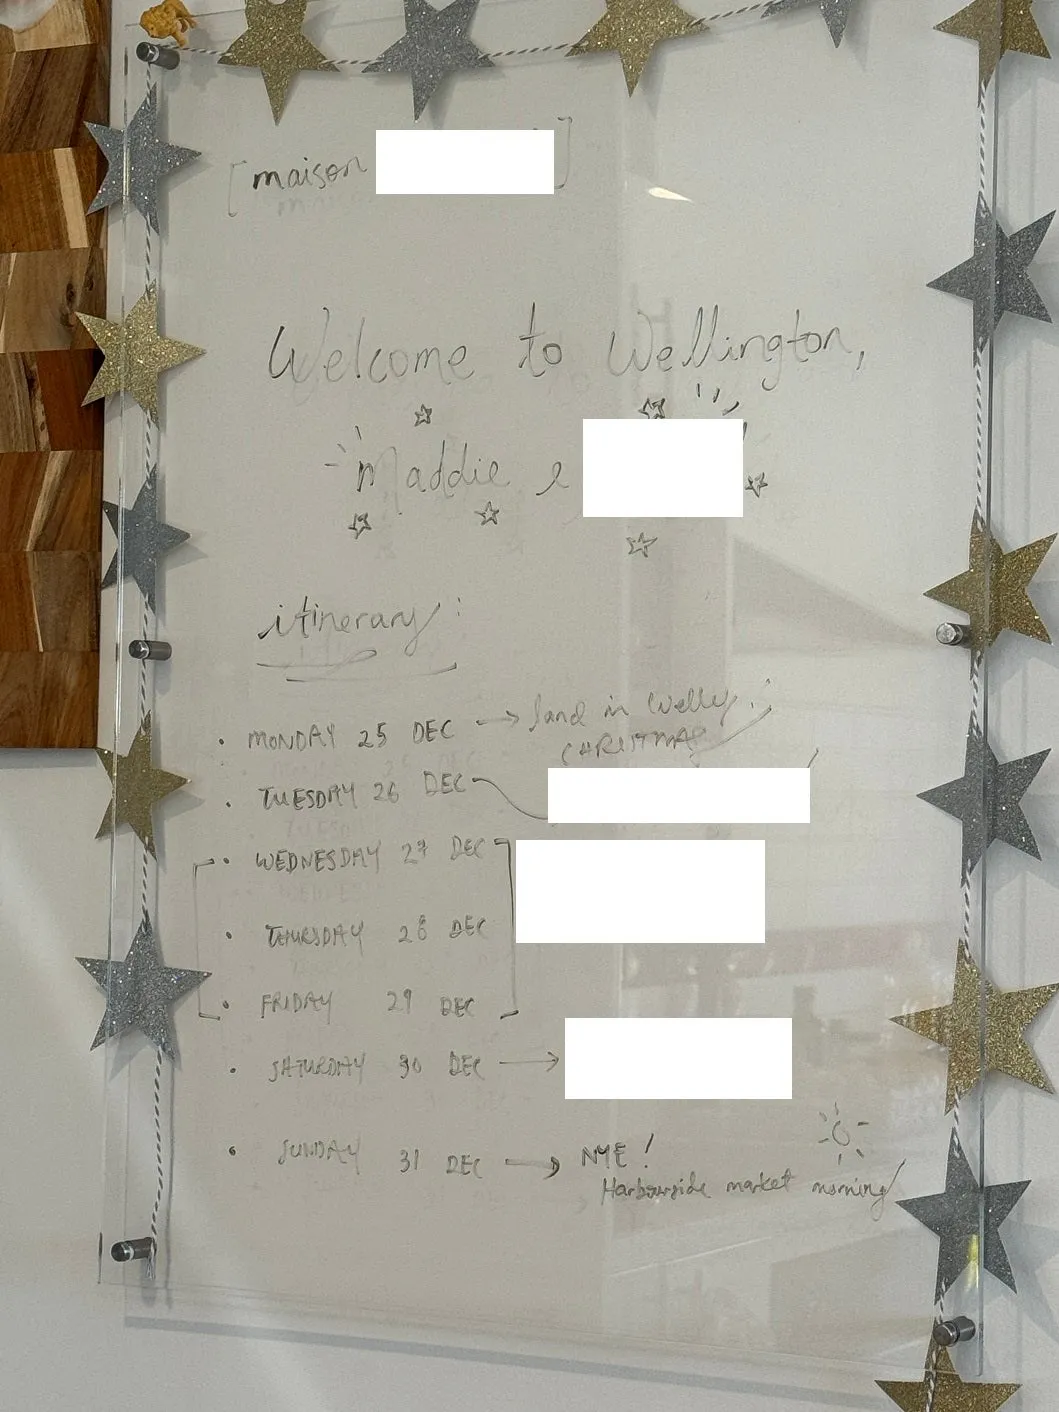 [maison ]
Welcome to Wellington,
Maddie &
itinerary:
• MONDAY 25 DEC → land in Welly!
CHRISTMAS
• TUESDAY 26 DEC
• WEDNESDAY 27 DEC
• THURSDAY 28 DEC
• FRIDAY 29 DEC
• SATURDAY 30 DEC →
• SUNDAY 31 DEC → NYE!
Harbourside market morning